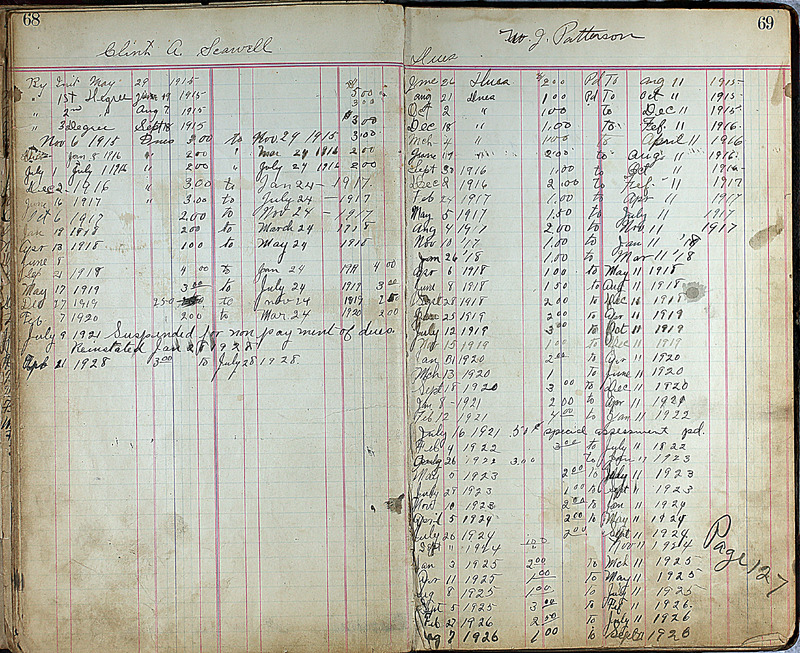 68
Clint A. Seawell
By Init May 29 1915 5.00
" 1st Degree June 19 1915 3.00
" 2nd " Aug 7 1915
" 3 Degree Sept 18 1915 $3.00
Nov 6 1915 Dues 3.00 to Nov 29 1915 3.00
Jan 8 1916 " 2.00 " Mar 24 1916 2.00
July 1 July 1 1916 " 2.00 " July 24 1916 2.00
Dec 2 1916 " 3.00 to Jan 24 - 1917
June 16 1917 " 3.00 to July 24 - 1917
Oct 6 1917 2.00 to Nov 24 - 1917
Jan 19 1918 2.00 to March 24
Apr 13 1918 1.00 to May 24 1918
June 8
Sep 21 1918 4.00 to Jan 24 1919 4.00
May 17 1919 3.00 to July 24 1919 3.00
Dec 27 1919 2.50 to Nov 24 1919
Feb 7 1920 2.00 to Mar 24 1920 2.00
July 9 1921 Suspended for non payment of dues.
Reinstated Jan 28 1928
21 1928 3.00 to July 28 1928.
69
J. Patterson
Dues
June 26 Dues 2.00 Pd To Aug 11 1915
Aug 21 Dues 1.00 Pd To Oct 11 1915
Oct 2 " 1.00 to Dec 11 1915
Dec 18 " 1.00 to Feb 11 1916
Mch 4 " 1.00 to April 11 1916
June 17 " 2.00 to Aug 11 1916
Sept 30 1916 1.00 to Oct 11 1916
Dec 2 1916 2.00 to Feb 11 1917
Feb 24 1917 1.00 to Apr 11 1917
May 5 1917 1.50 to July 11 1917
Aug 4 1917 2.00 to Nov 11 1917
Nov 10 '17 1.00 to Jan 11 '18
Jan 26 '18 1.00 to Mar 11 '18
Apr 6 1918 1.00 to May 11 1918
June 8 1918 1.50 to Aug 11 1918
28 1918 2.00 to Dec 16 1918
25 1919 2.00 to Apr 11 1919
July 12 1919 3.00 to Oct 11 1919
Nov 15 1919 1.00 to Dec 11 1919
Jan 31 1920 2.00 to Apr 11 1920
Mch 13 1920 1 to June 11 1920
Sept 18 1920 3.00 to Dec 11 1920
Jan 8 - 1921 2.00 to Apr 11 1921
Feb 12 1921 4.00 to Jan 11 1922
July 16 1921 .50¢ special assessment pd.
Feb 4 1922 3.00 to July 11 1822
26 1922 3.00 to Jan 11 1923
May 1923 2.00 to July 11 1923
July 28 1923 1.00 to Sept 11 1923
Nov 10 1923 2.00 to Jan 11 1924
April 5 1924 2.00 to May 11 1924
July 26 1924 2.00 Sept 11 1924
Sept 11 1924 1.00 Nov 11 1924
Jan 3 1925 2.00 to Mch 11 1925
Apr 11 1925 1.00 to May 11 1925
Aug 8 1925 1.00 to July 11 1925
5 1925 3.00 to Feb 11 1926
Feb 27 1926 2.00 to July 11 1926
Aug 7 1926 1.00 to Sept 11 1926
Page 127